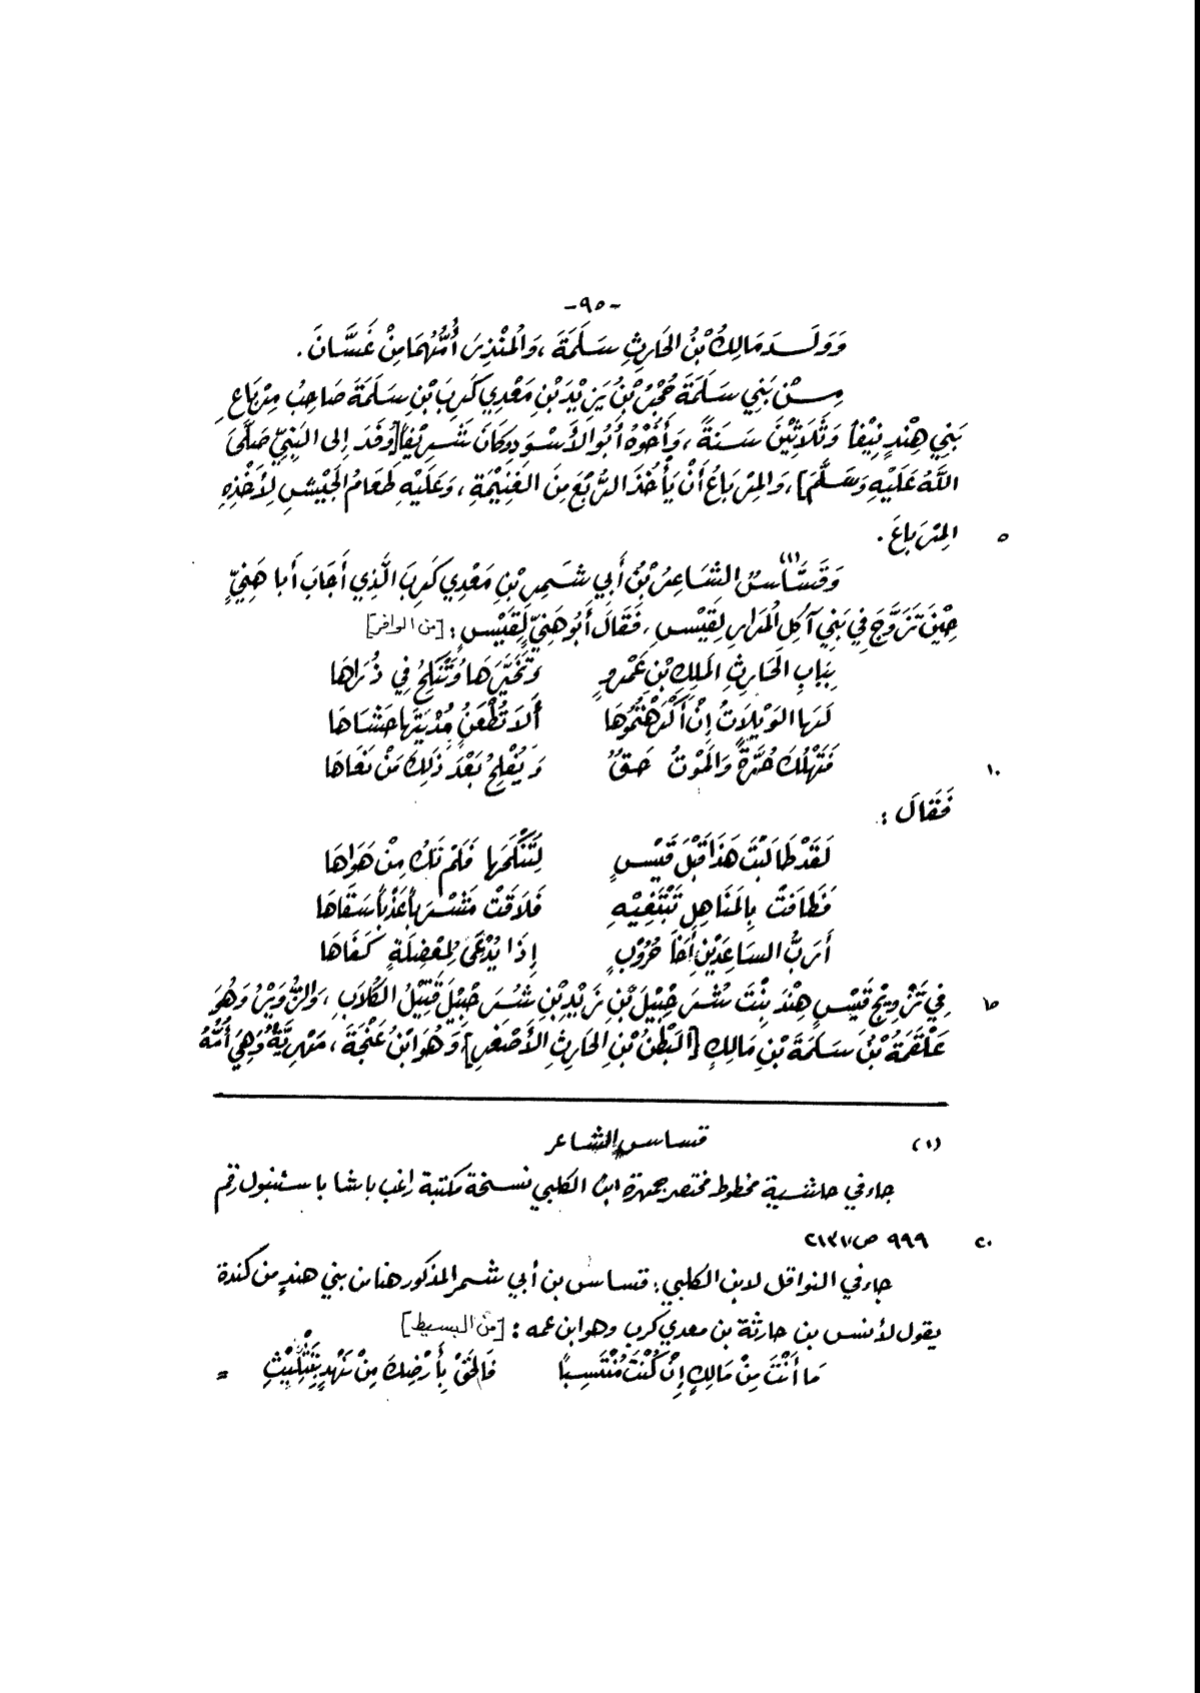 -٩٥-
وَوَلَدَ مَالِكُ بْنُ الحَارِثِ سَلَمَةَ ، وَالمُنْذِرَ أُمُّهُمَا مِنْ غَسَّانَ .
مِنْ بَنِي سَلَمَةَ حُجْرُ بْنُ يَزِيْدَ بْنِ مَعْدِي كَرِبَ بْنِ سَلَمَةَ صَاحِبُ مِرْبَاعِ
بَنِي هِنْدٍ نَيِّفاً وَثَلاَثِيْنَ سَنَةً ، وَأَخُوْهُ أَبُو الأَسْوَدِ وَكَانَ شَرِيْفاً [وَفَدَ إِلى النَّبِيِّ صَلَّىَ
اللَّهُ عَلَيْهِ وَسَلَّمَ] ، وَالمِرْبَاعُ أَنْ يَأْخُذَ الرُّبْعَ مِنَ الغَنِيْمَةِ ، وَعَلَيْهِ طَعَامُ الجَيْشِ لِأَخْذِهِ
المِرْبَاعَ . ٥
وَقَسَّاسُ (١) الشَّاعِرُ بْنُ أَبِي شَمِرِ بْنِ مَعْدِي كَرِبَ الَّذِي أَجَابَ أَبا هَنِيٍّ
حِيْنَ تَزَوَّجَ فِي بَنِي آكِلِ المُرَارِ لِقَيْسٍ ، فَقَالَ أَبُو هَنِيٍّ لِقَيْسٍ : [من الوافر]
بِبَابِ الحَارِثِ المَلِكِ بْنِ عَمْرٍو وَتَخَيَّرَهَا وَتَنْكِحُ فِي ذُرَاهَا
لَهَا الوَيْلاَتُ إِنْ أَكْرَهْتُمُوْهَا أَلاَ تُطْعَنُ مُدْيَتُهَا حَشَاهَا
فَتَهْلِكَ حُرَّةً وَالمَوْتُ حَقٌّ وَيُفْلِحُ بَعْدَ ذَلِكَ مَنْ نَعَاهَا ١٠
فَقَالَ :
لَقَدْ طَالَبْتَ هَذَا قَبْلَ قَيْسٍ لِتَنْكِحَهَا فَلَمْ تَكُ مِنْ هَوَاهَا
فَطَافَتْ بِالمَنَاهِلِ تَبْتَغِيْهِ فَلاَقَتْ مَشْرَباً عَذْباً سَقَاهَا
أَرَبُّ السَاعِدَيْنِ أَخَا حُرُوْبٍ إِذَا يُدْعَى لِمُعْضِلَةٍ كَفَاهَا
فِي تَزْوِيْجِ قَيْسٍ هِنْدَ بِنْتَ شُرَحْبِيْلَ بْنِ زَيْدِ بْنِ شُرَحْبِيْلَ قَتِيْلُ الكُلاَبِ ، وَالزُّوَيْرُ وَهُوَ ١٥
عَلْقَمَةُ بْنُ سَلَمَةَ بْنِ مَالِكٍ [البَطْنُ بْنِ الحَارِثِ الأَصْغَرِ] ، وَهُوَ ابْنُ عَنْجَةَ ، مَهْرِيَّةٌ وَهِيَ أُمُّهُ
(١) قساس الشاعر
جاء في حاشية مخطوط مختصر جمهرة ابن الكلبي نسخة مكتبة راغب باشا باستنبول رقم
٩٩٩ ص ٢١٣٧ ٢٠
جاء في النواقل لابن الكلبي : قساس بن أبي شمر المذكور هنا من بني هندٍ من كندة
يقول لأنس بن حارثة بن معدي كرب وهو ابن عمه : [من البسيط]
مَا أَنْتَ مِنْ مَالِكٍ إِنْ كُنْتَ مُنْتَسِباً فَالحَقْ بِأَرْضِكَ مِنْ نَهْدٍ بِتَثْلِيْثِ =